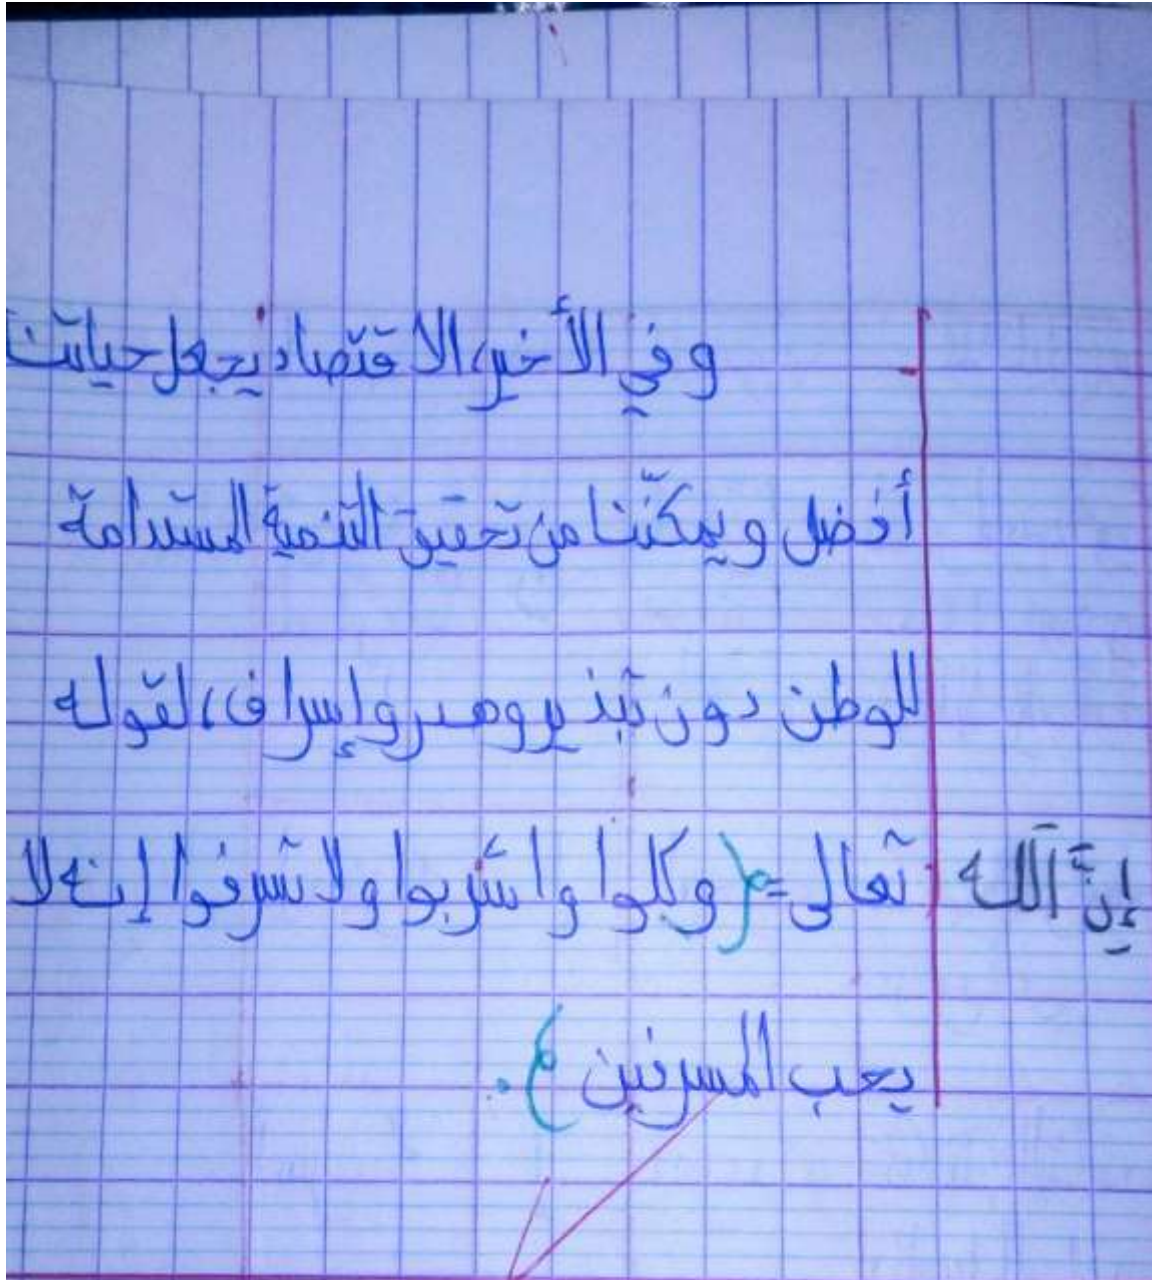 وفي الأخير، الاقتصاد يجعل حياتنا
أفضل ويمكّننا من تحقيق التنمية المستدامة
للوطن دون تبذير وهدر وإسراف، لقوله
تعالى = ﴿وكلوا واشربوا ولا تسرفوا إنه لا
يحب المسرفين﴾.
إنّ الله